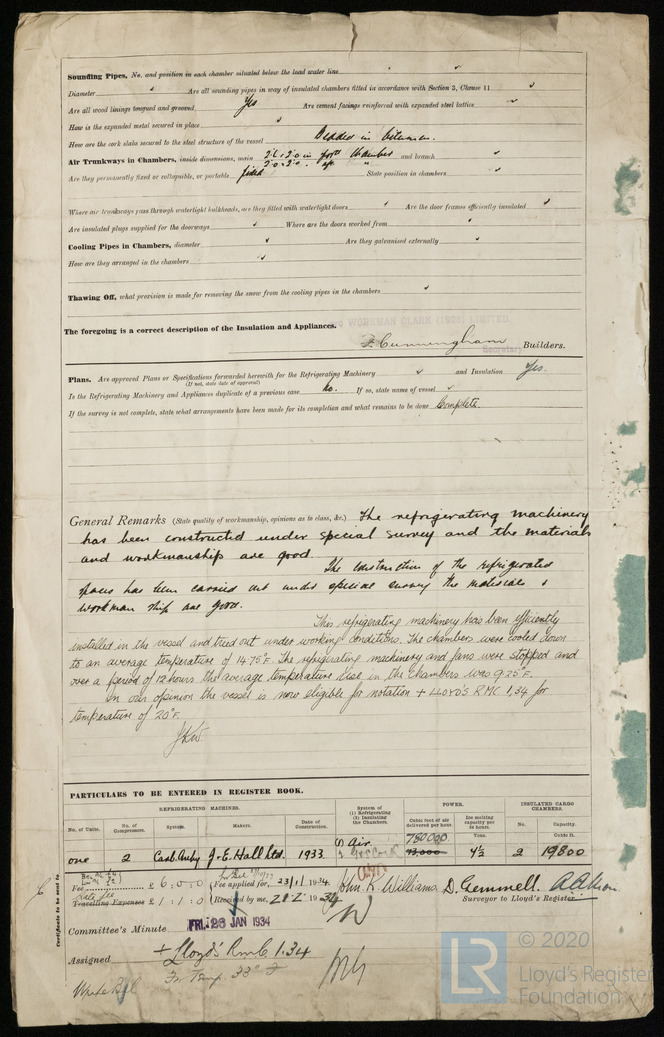 Sounding Pipes, No. and position in each chamber situated below the load water line
Diameter Are all sounding pipes in way of insulated chambers fitted in accordance with Section 3, Clause 11
Are all wood linings tongued and grooved Yes Are cement facings reinforced with expanded steel lattice
How is the expanded metal secured in place
How are the cork slabs secured to the steel structure of the vessel Bedded in bitumen.
Air Trunkways in Chambers, inside dimensions, main in chamber and branch
Are they permanently fixed or collapsible, or portable fixed State position in chambers
Where air trunkways pass through watertight bulkheads, are they fitted with watertight doors Are the door frames efficiently insulated
Are insulated plugs supplied for the doorways Where are the doors worked from
Cooling Pipes in Chambers, diameter Are they galvanised externally
How are they arranged in the chambers
Thawing Off, what provision is made for removing the snow from the cooling pipes in the chambers
WORKMAN CLARK (1928) LIMITED.
The foregoing is a correct description of the Insulation and Appliances.
F. Cunningham Builders.
Secretary
Plans. Are approved Plans or Specifications forwarded herewith for the Refrigerating Machinery and Insulation Yes.
(If not, state date of approval)
Is the Refrigerating Machinery and Appliances duplicate of a previous case No. If so, state name of vessel
If the survey is not complete, state what arrangements have been made for its completion and what remains to be done Complete.
General Remarks (State quality of workmanship, opinions as to class, &c.) The refrigerating machinery
has been constructed under special survey and the materials
and workmanship are good.
The construction of the refrigerated
spaces has been carried out under special survey the materials &
workmanship are good.
This refrigerating machinery has been efficiently
installed in the vessel and tried out under working conditions. The chambers were cooled down
to an average temperature of 14.75°F. The refrigerating machinery and fans were stopped and
over a period of 12 hours the average temperature rise in the chambers was 9.25°F.
In our opinion the vessel is now eligible for notation + LLOYD'S RMC 1,34 for
temperature of 20°F.
JKW
PARTICULARS TO BE ENTERED IN REGISTER BOOK.
REFRIGERATING MACHINES. System of (1) Refrigerating (2) Insulating the Chambers. POWER. INSULATED CARGO CHAMBERS.
No. of Units. No. of Compressors. System. Makers. Date of Construction. Cubic feet of air delivered per hour. Ice melting capacity per 24 hours. No. Capacity.
Tons. Cubic ft.
780000
one 2 Carb. Anhy. J. & E. Hall Ltd. 1933 (1) Air 4½ 2 19800
Fee £ 6 : 0 : 0 Fee applied for, 23/1/1934 John K. Williams D. Gemmell.
Late fee
Travelling Expenses £ 1 : 1 : 0 Received by me, 21.2.1934 Surveyor to Lloyd's Register
Certificate to be sent to
Committee's Minute FRI. 26 JAN 1934
Assigned + Lloyd's RMC 1.34
Fr Temp. 33° F
© 2020
LR
Lloyd's Register
Foundation